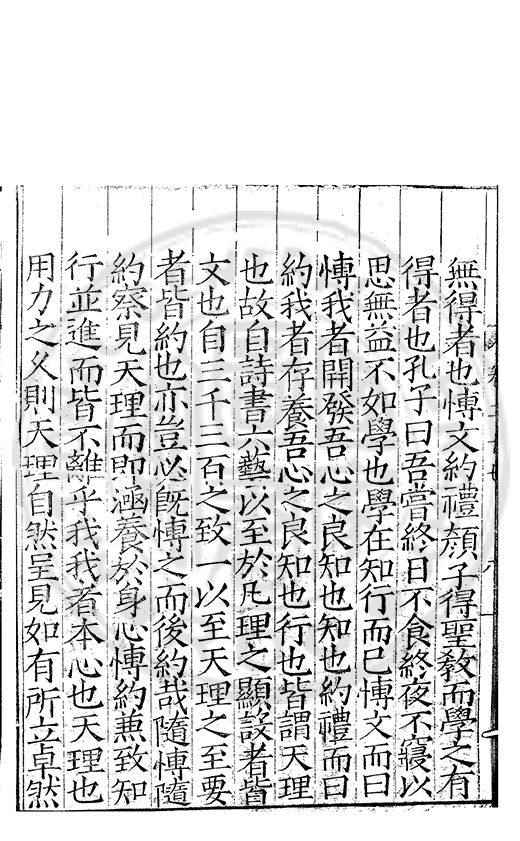 無得者也愽文約禮顔子得聖教而學之有
得者也孔子曰吾嘗終日不食終夜不寢以
思無益不如學也學在知行而已愽文而曰
愽我者開發吾心之良知也知也約禮而曰
約我者存養吾心之良知也行也皆謂天理
也故自詩書六藝以至於凡理之顯設者皆
文也自三千三百之致一以至天理之至要
者皆約也亦豈必旣愽之而後約哉隨愽隨
約察見天理而即涵養於身心愽約兼致知
行並進而皆不離乎我我者本心也天理也
用力之久則天理自然呈見如有所立卓然